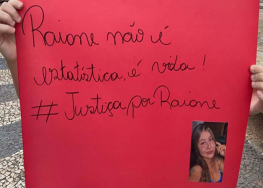 Raione não é
estatística, é vida!
# Justiça por Raione